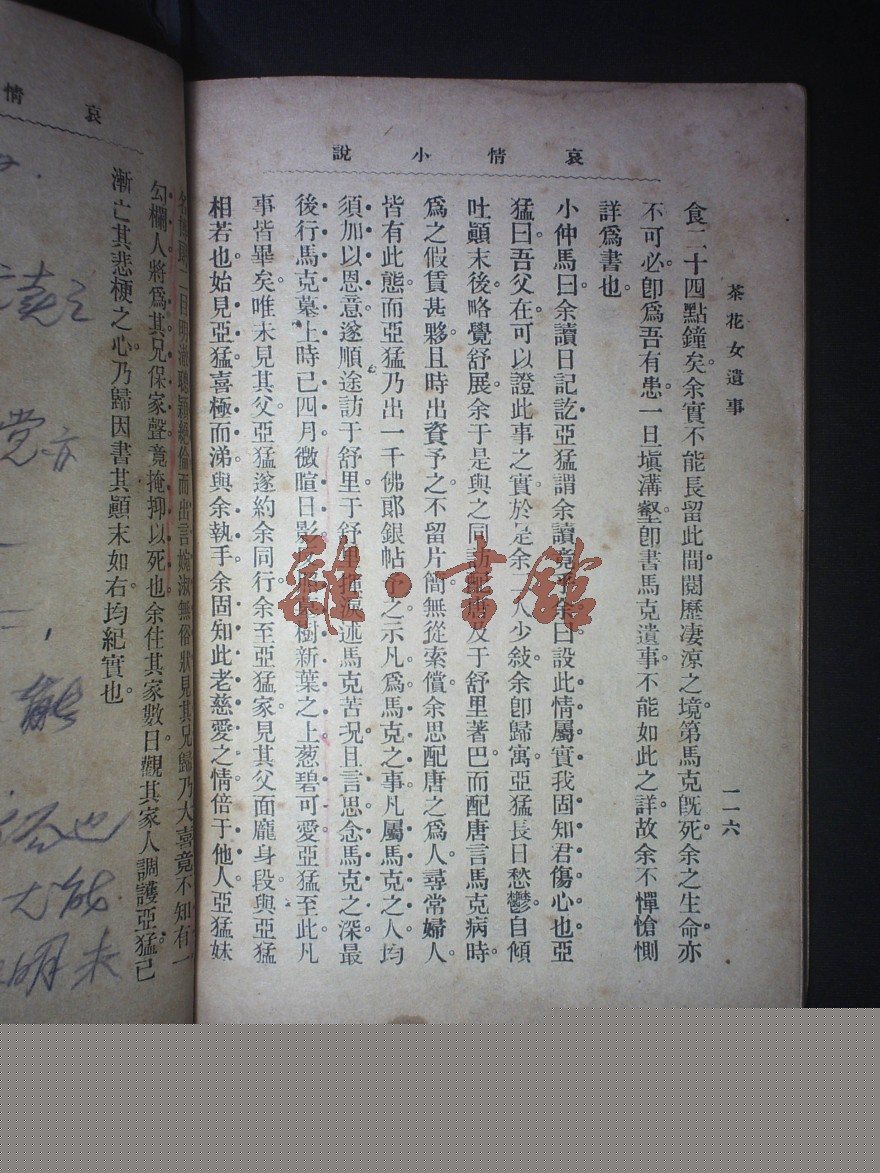 哀情小說
茶花女遺事
一一六
食二十四點鐘矣余實不能長留此間閱歷凄涼之境。第馬克旣死。余之生命亦
不可必卽爲吾有患一旦塡溝壑卽書馬克遺事不能如此之詳故余不憚愴惻
詳爲書也。
小仲馬曰余讀日記訖亞猛謂余讀竟乎余曰設此情屬實我固知君傷心也亞
猛曰吾父在可以證此事之實於是余二人少敍余卽歸寓亞猛長日愁鬱自傾
吐顚末後。略覺舒展余于是與之同訪配唐及于舒里著巴。而配唐言馬克病時。
爲之假貸甚夥。且時出資予之不留片簡無從索償。余思配唐之爲人。尋常婦人。
皆有此態而亞猛乃出一千佛郞銀帖予之示凡爲馬克之事凡屬馬克之人均
須加以恩意遂順途訪于舒里于舒里揮淚述馬克苦況且言思念馬克之深最
後行馬克墓上時已四月微暄日影樹新葉之上葱碧可愛亞猛至此凡
事皆畢矣唯未見其父。亞猛遂約余同行。余至亞猛家。見其父面龐身段與亞猛
相若也始見亞猛喜極而涕與余執手余固知此老慈愛之情倍于他人。亞猛妹
二目明瀞聰穎絕倫而出言婉淑無俗狀見其兄歸乃大喜竟不知有一
勾欄人將爲其兄保家聲竟掩抑以死也。余住其家數日。觀其家人調護亞猛已
漸亡其悲梗之心。乃歸因書其顚末如右。均紀實也。
哀情
党亦
能
也
尤能
明未
雜·書館